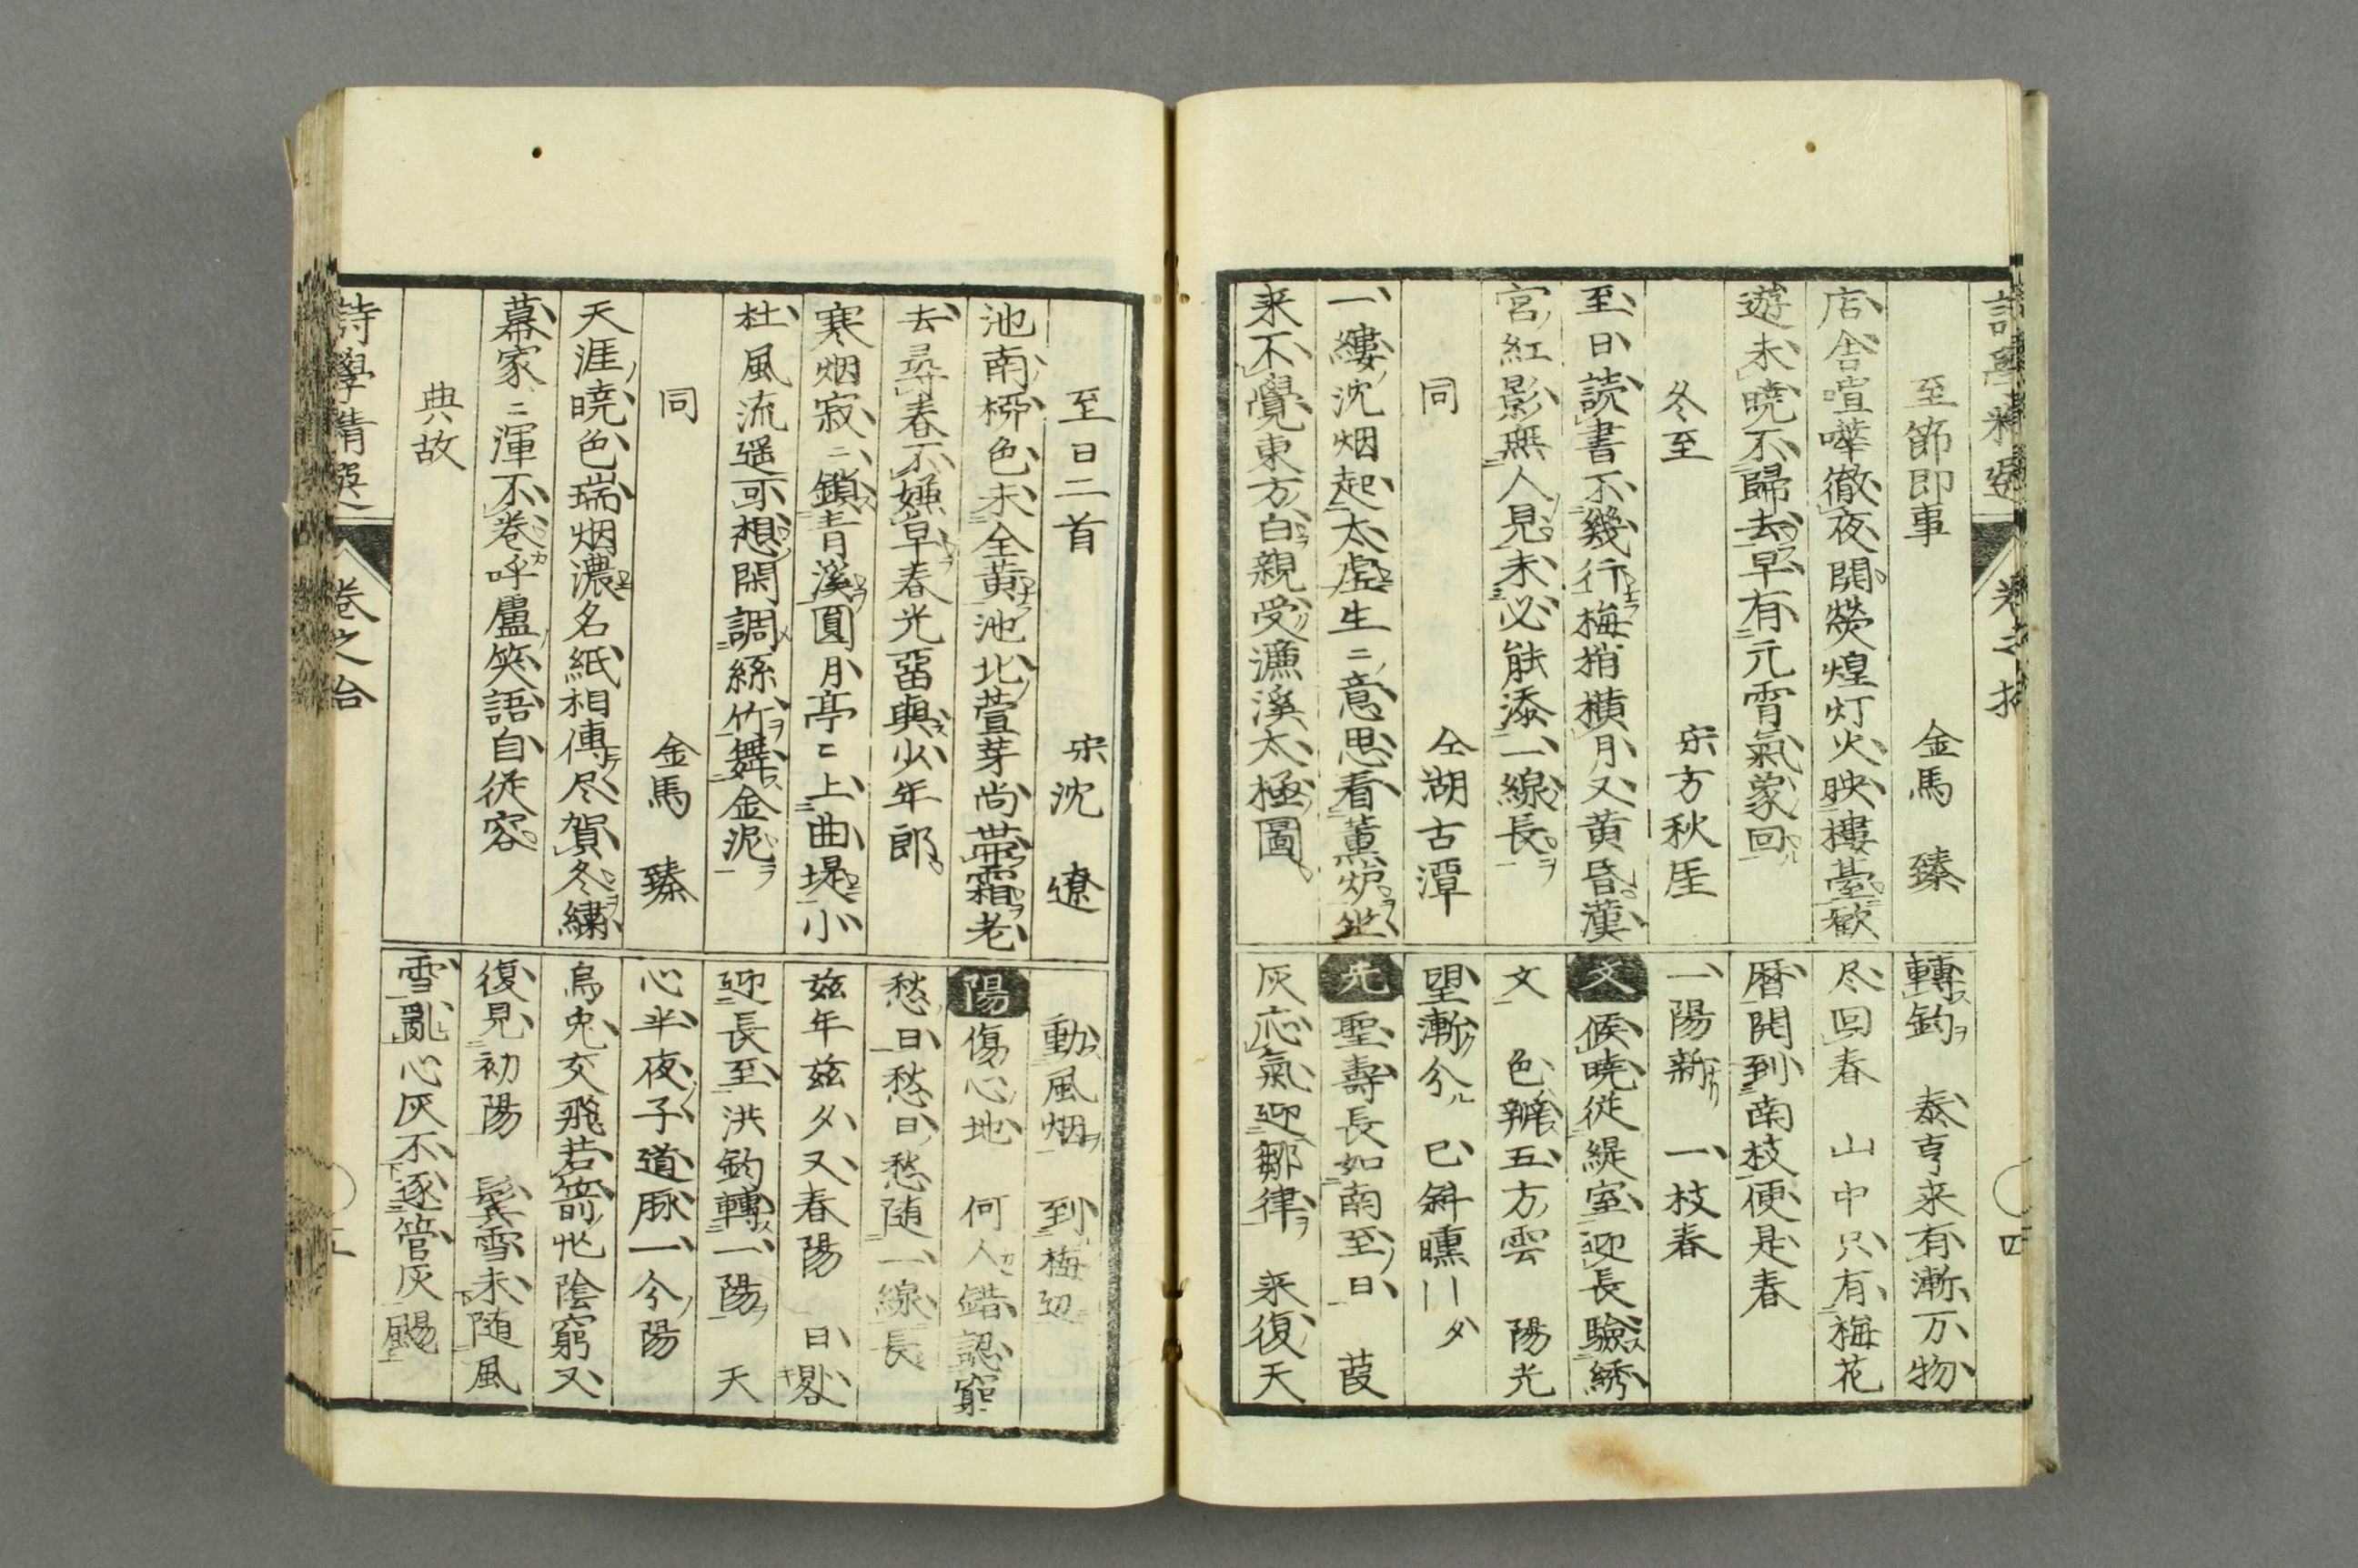 至節即事 金馬 臻
店舎喧嘩徹夜開熒煌灯火映樓臺歓
遊未暁不歸去早有元霄氣象回
冬至 宋方秋厓
至日読書不幾行梅梢横月又黄昏漢
宮紅影無人見未必能添一線長
同 仝湖古潭
一縷沈烟起太虚生ニ意思看薫炉坐
来不覺東方白親受濂溪太極圖
轉鈞 泰亨来有漸万物
尽回春 山中只有梅花
暦開到南枝便是春
一陽新 一枝春
文 候暁従緹室迎長驗綉
文 色辨五方雲 陽光
望漸分 已斜曛
先 聖壽長如南至日 葭
灰応氣迎鄒律 来復天
至日二首 宋沈 遼
池南栁色未全黄池北萱芽尚帯霜老
去尋春不嫌早春光畱與少年郎
寒烟寂ニ鎖青溪圓月亭ニ上曲堤小
杜風流遥可想閑調絲竹舞金泥
同 金馬 臻
天涯暁色瑞烟濃名紙相傳尽賀冬繍
幕家ニ渾不巻呼盧笑語自従容
典故
動風烟 到梅辺
陽 傷心地 何人錯認窮
愁日愁日愁随一線長
茲年茲夕又春陽 日
迎長至洪鈞轉一陽 天
心半夜子道脉一分陽
烏兎交飛若箭忙陰窮又
復見初陽 鬓雪未随風
雪亂心灰不逐管灰颺
詩學精選 巻之台